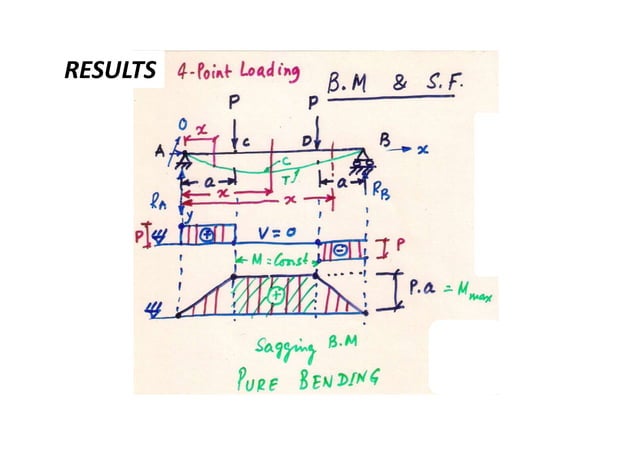 RESULTS
4-Point Loading
B.M & S.F.
P P
O
x
A C D B x
C
T
a a
x
x
RA RB
y
P + V=0 - P
M = Const
+ P.a = Mmax
Sagging B.M
PURE BENDING